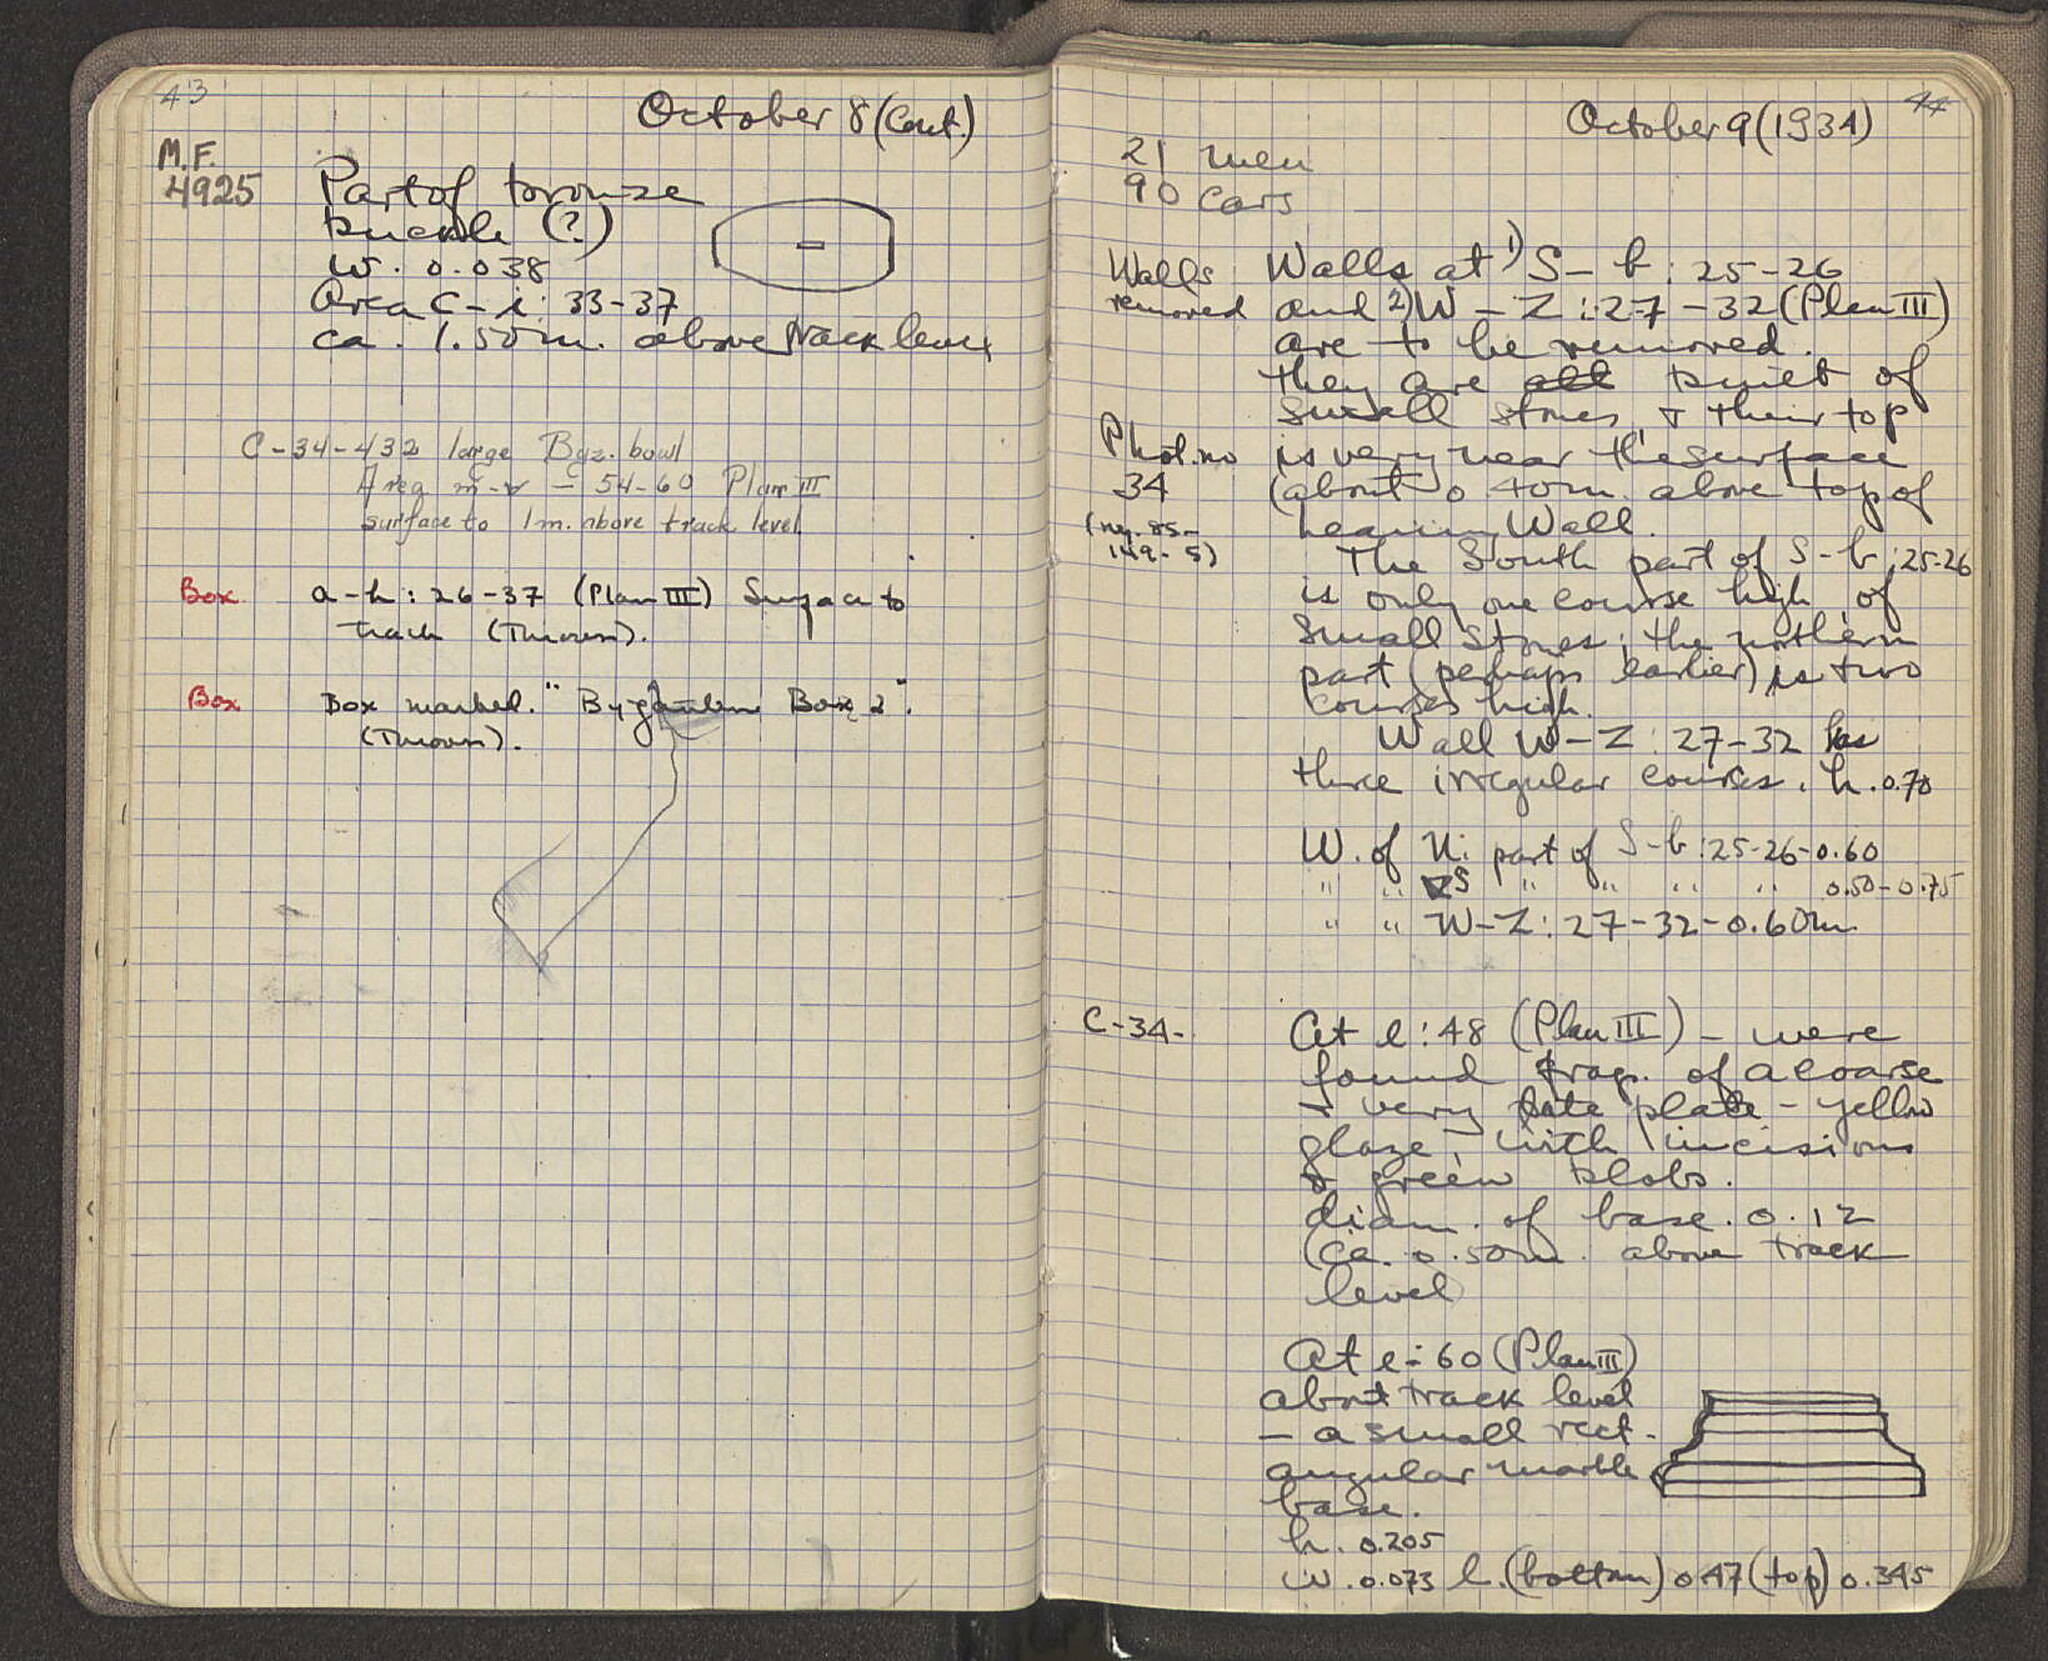 43
October 8 (Cont.)
M.F.
4925
Part of bronze
buckle (?)
w. 0.038
Area C - i : 33-37
ca. 1.50 m. above track level
C-34-432 large Byz. bowl
Area m-v - 54-60 Plan III
surface to 1m. above track level
Box a-h : 26-37 (Plan III) Surface to
track (Thrown).
Box Box marked "Byzantine Box 2".
(Thrown).
44
October 9 (1934)
21 men
90 cars
Walls
removed
Walls at 1) S - b : 25-26
and 2) W - Z : 27-32 (Plan III)
are to be removed.
They are all built of
small stones, & their top
Phot. no
34
(neg. 85-
149-5)
is very near the surface
(about 0.40m. above top of
Wall.
The South part of S-b : 25-26
is only one course high, of
small stones; the northern
part (perhaps earlier) is two
courses high.
Wall W-Z : 27-32 has
three irregular courses. h. 0.70
W. of N. part of S-b : 25-26-0.60
" " S " " " " 0.50-0.75
" " W-Z : 27-32-0.60m.
C-34-
At l : 48 (Plan III) - were
found frag. of a coarse
& very late plate - yellow
glaze, with incisions
& green blobs.
diam. of base. 0.12
(ca. 0.50m. above track
level
At e-60 (Plan III)
about track level
- a small rect-
angular marble
base.
h. 0.205
w. 0.073 l. (bottom) 0.47 (top) 0.345